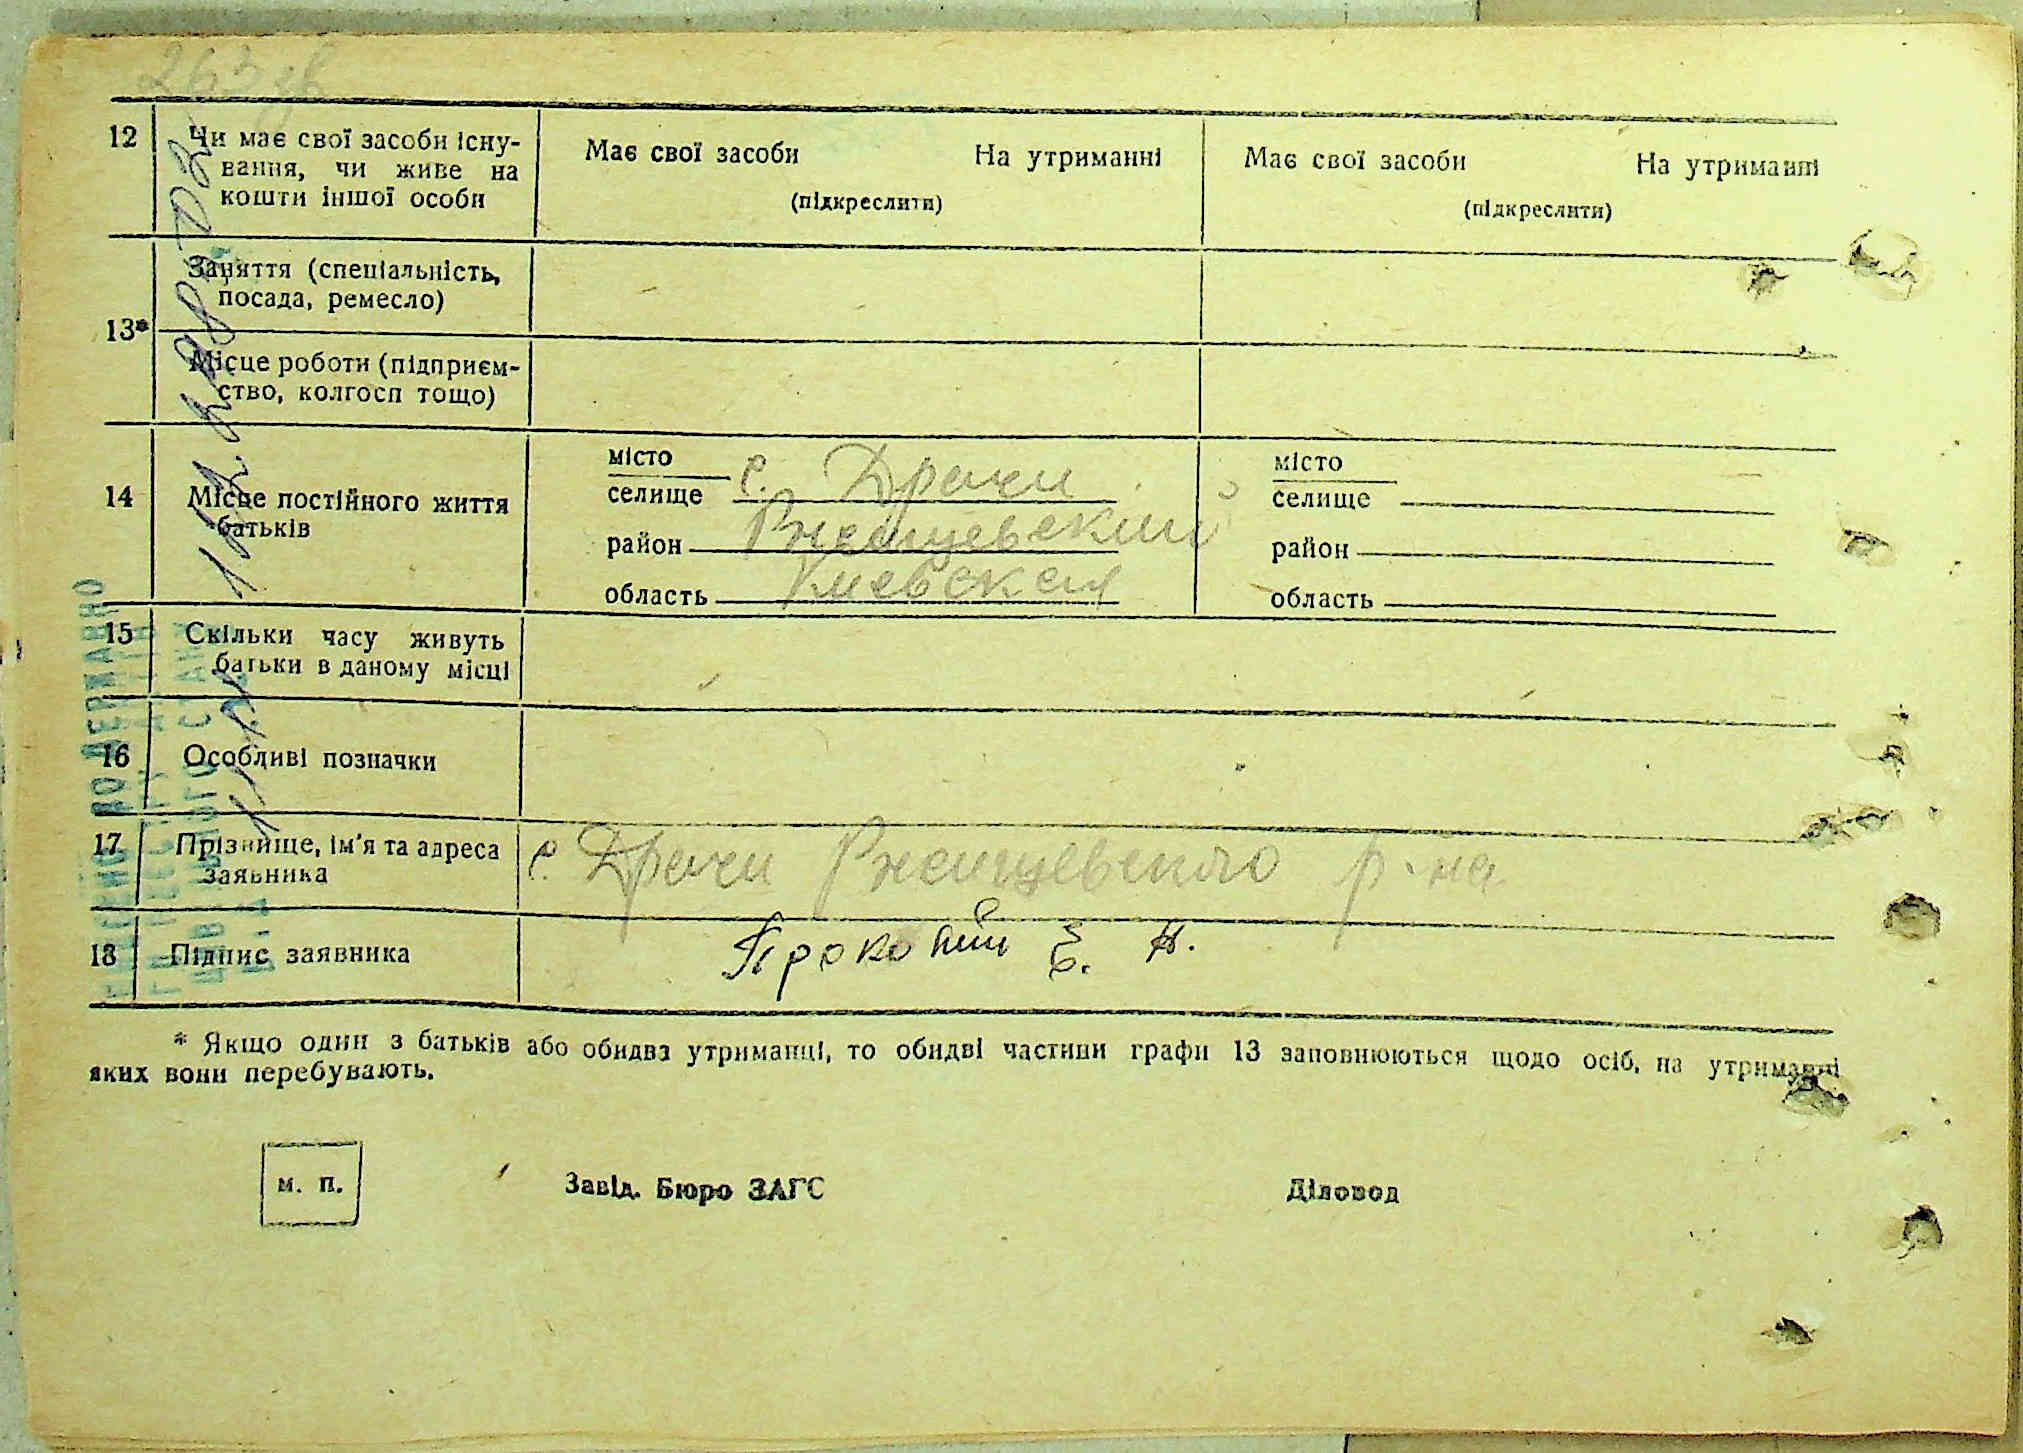 263 зв
12 Чи має свої засоби існу-
вання, чи живе на
кошти іншої особи
Має свої засоби На утриманні
(підкреслити)
Має свої засоби На утриманні
(підкреслити)
13*
Заняття (спеціальність,
посада, ремесло)
Місце роботи (підприєм-
ство, колгосп тощо)
14 Місце постійного життя
батьків
місто
селище с. Драчи
район Ржищевский
область Киевская
місто
селище
район
область
15 Скільки часу живуть
батьки в даному місці
16 Особливі позначки
17 Прізвище, ім'я та адреса
заявника
с. Драчи Ржищевского р-на
18 Підпис заявника
Прокопий Е. П.
* Якщо один з батьків або обидва утриманці, то обидві частини графи 13 заповнюються щодо осіб, на утриманні
яких вони перебувають.
м. п.
Завід. Бюро ЗАГС
Діловод